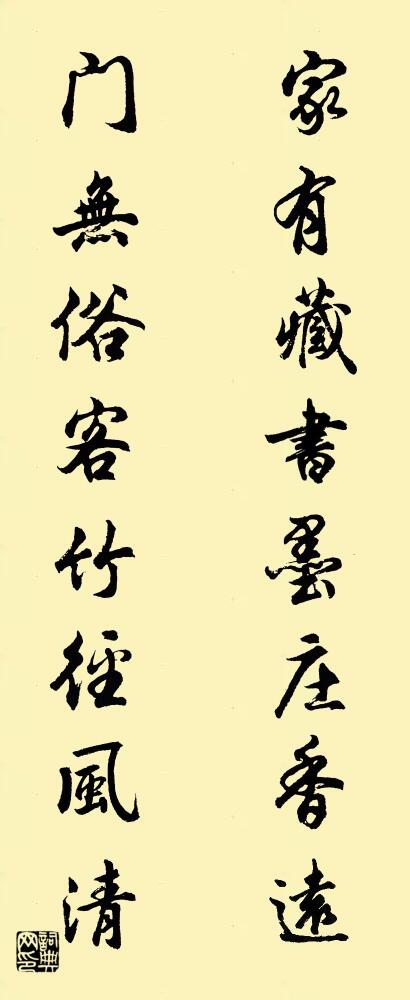 家有藏書墨庄香遠
门無俗客竹徑風清
詞典网印